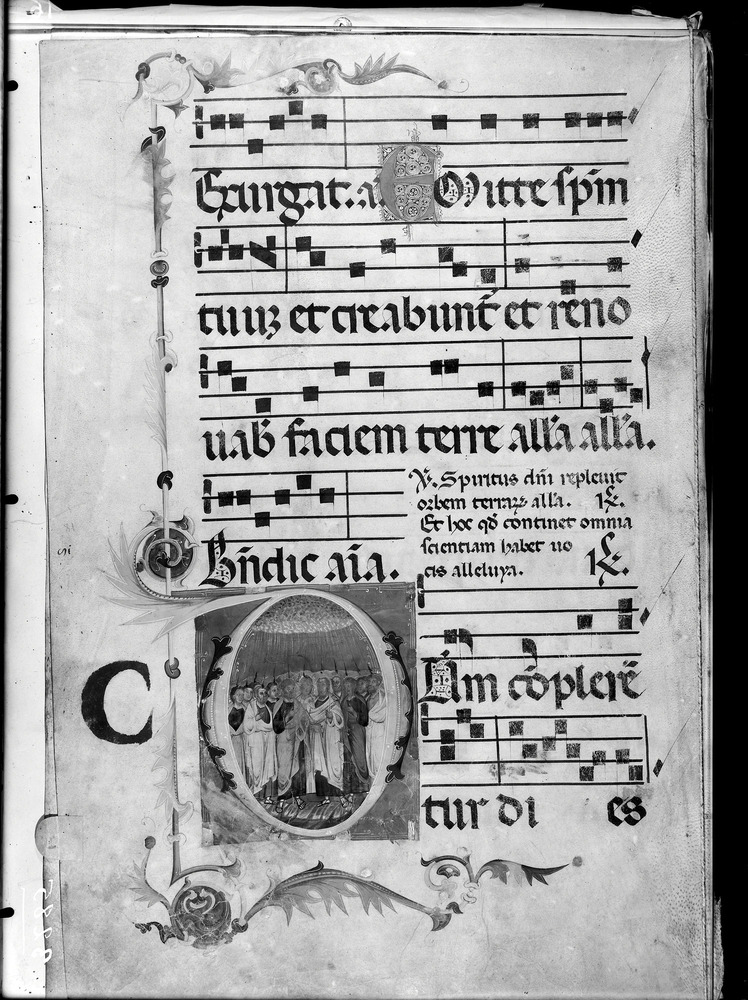 Exurgat. a Emitte spm
tuuꝫ et creabunt̄ et reno
uab̄ faciem terre all̄a all̄a.
Bn̄dic aīa.
℣. Spiritus dn̄i repleuit
orbem terraꝝ all̄a. ℟.
Et hoc qd̄ continet omnia
scientiam habet uo
cis alleluya. ℟.
C
Um cōplerē
tur di es